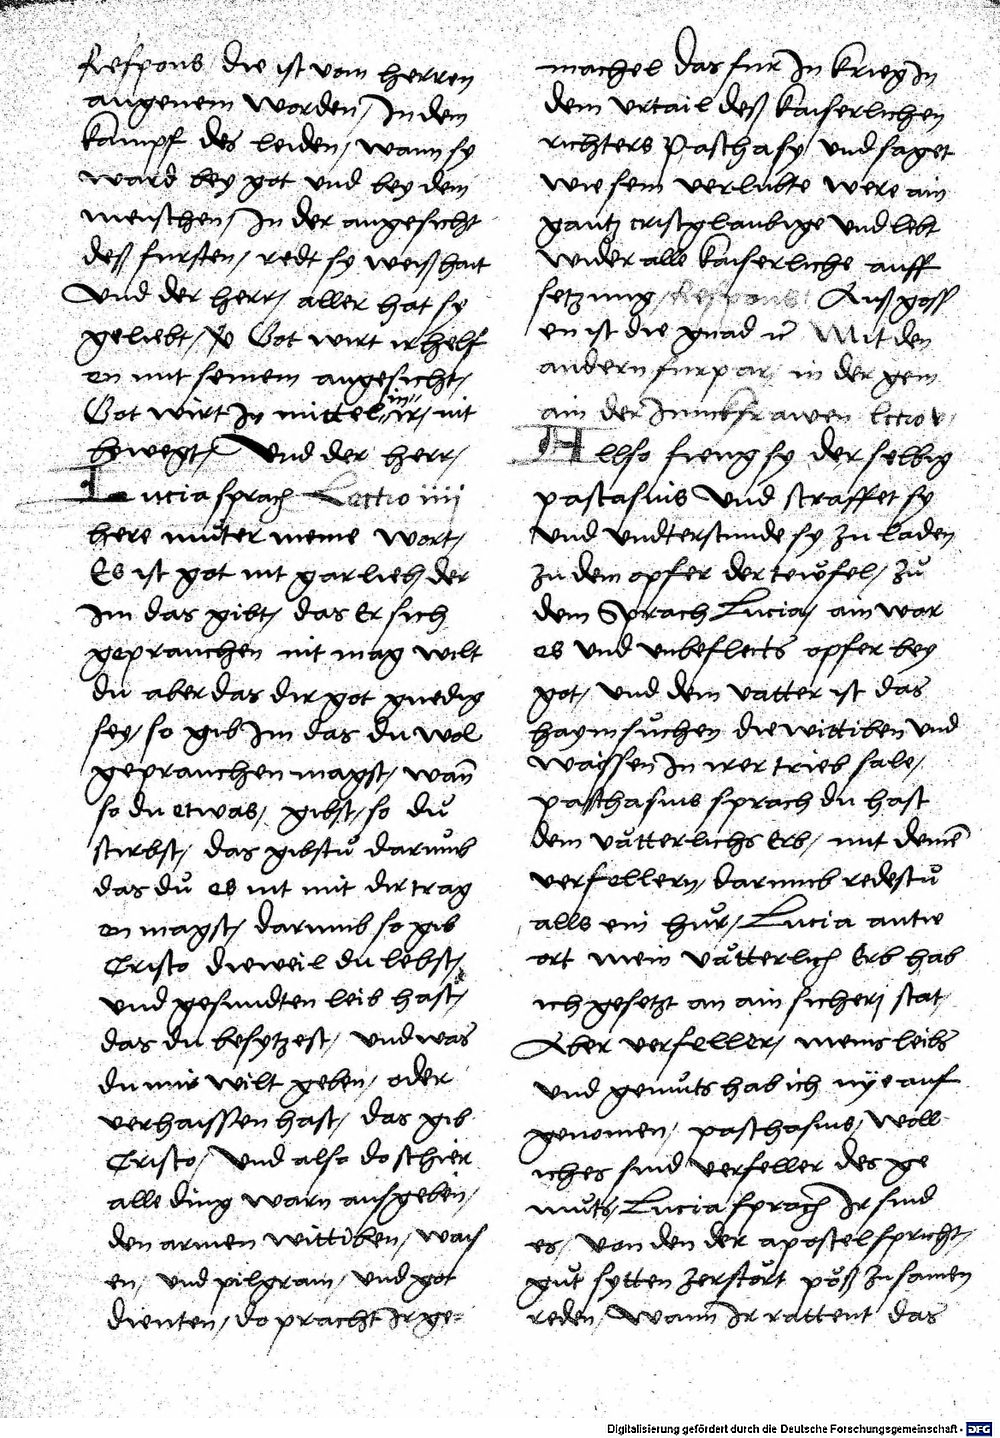 Respons die ist vom herren
angenem worden / In dem
kampf des leiden / wann sy
ward bey got und bey dem
menschen / In der angesicht
deß fursten / redt sy weißhait
Und der herr / aller hat sy
geliebt / Got wirt ir helf
en mit seinem angesicht /
Got wirt In mittel in ir / nit
bewegt / Und der herr /
Lucia sprach Lectio iiii
here muter meine wort /
Es ist got nit gar lieb der
Im das gibt / das Er sich
geprauchen nit mag wilt
du aber das dir got gnedig
sey / so gib Im das du wol
geprauchen magst / wan
so du etwas / gibst / so du
stirbst / das gibstu darumb
das du es nit mit dir trag
en magst / darumb so gib
Cristo dieweil du lebst /
und gesundten leib hast /
das du besytzest / und was
du mir wilt geben / oder
verhaissen hast / das gib
Cristo / Und also do schier
alle ding warn ausgeben /
den armen wittiben / wais
en / und pilgram / und got
dienten / do pracht Ir ge=
machel das fur In krieg In
dem urtail deß kaiserlichen
richters Paschasy und saget
wie sein verlubte were ain
gantz cristglaubige und lebt
wider alle kaiserliche auff
setzung / Respons Auß goss
en ist die gnad Mit den
andern furpar / in der gem
ain der Junckfrawen lectio v
Allso fieng sy der selbig
pascasius und straffet sy
und undterstunde sy zu laden
zu dem opfer der tewfel / zu
dem Sprach Lucia / ain war
es und unbeflects opfer bey
got / und dem vatter ist das
haymsuchen die wittiben und
waissen In irer triebsale /
paschasius sprach du hast
dem vatterlichs Erb / mit deinen
verfellern / darumb redestu
alls ein hur / Lucia antw
ort mein vatterlich Erb hab
ich gesetzt an ain sichern stat /
Aber verfeller / meins leibs
und gemuts hab ich nye auf
genomen / paschasius / woll
iches sind verfeller des ge
muts / Lucia sprach Ir sind
es / von den der apostel spricht /
gut sytten zerstort poß zusamen
reden / Wann Ir rattent das
Digitalisierung gefördert durch die Deutsche Forschungsgemeinschaft - DFG